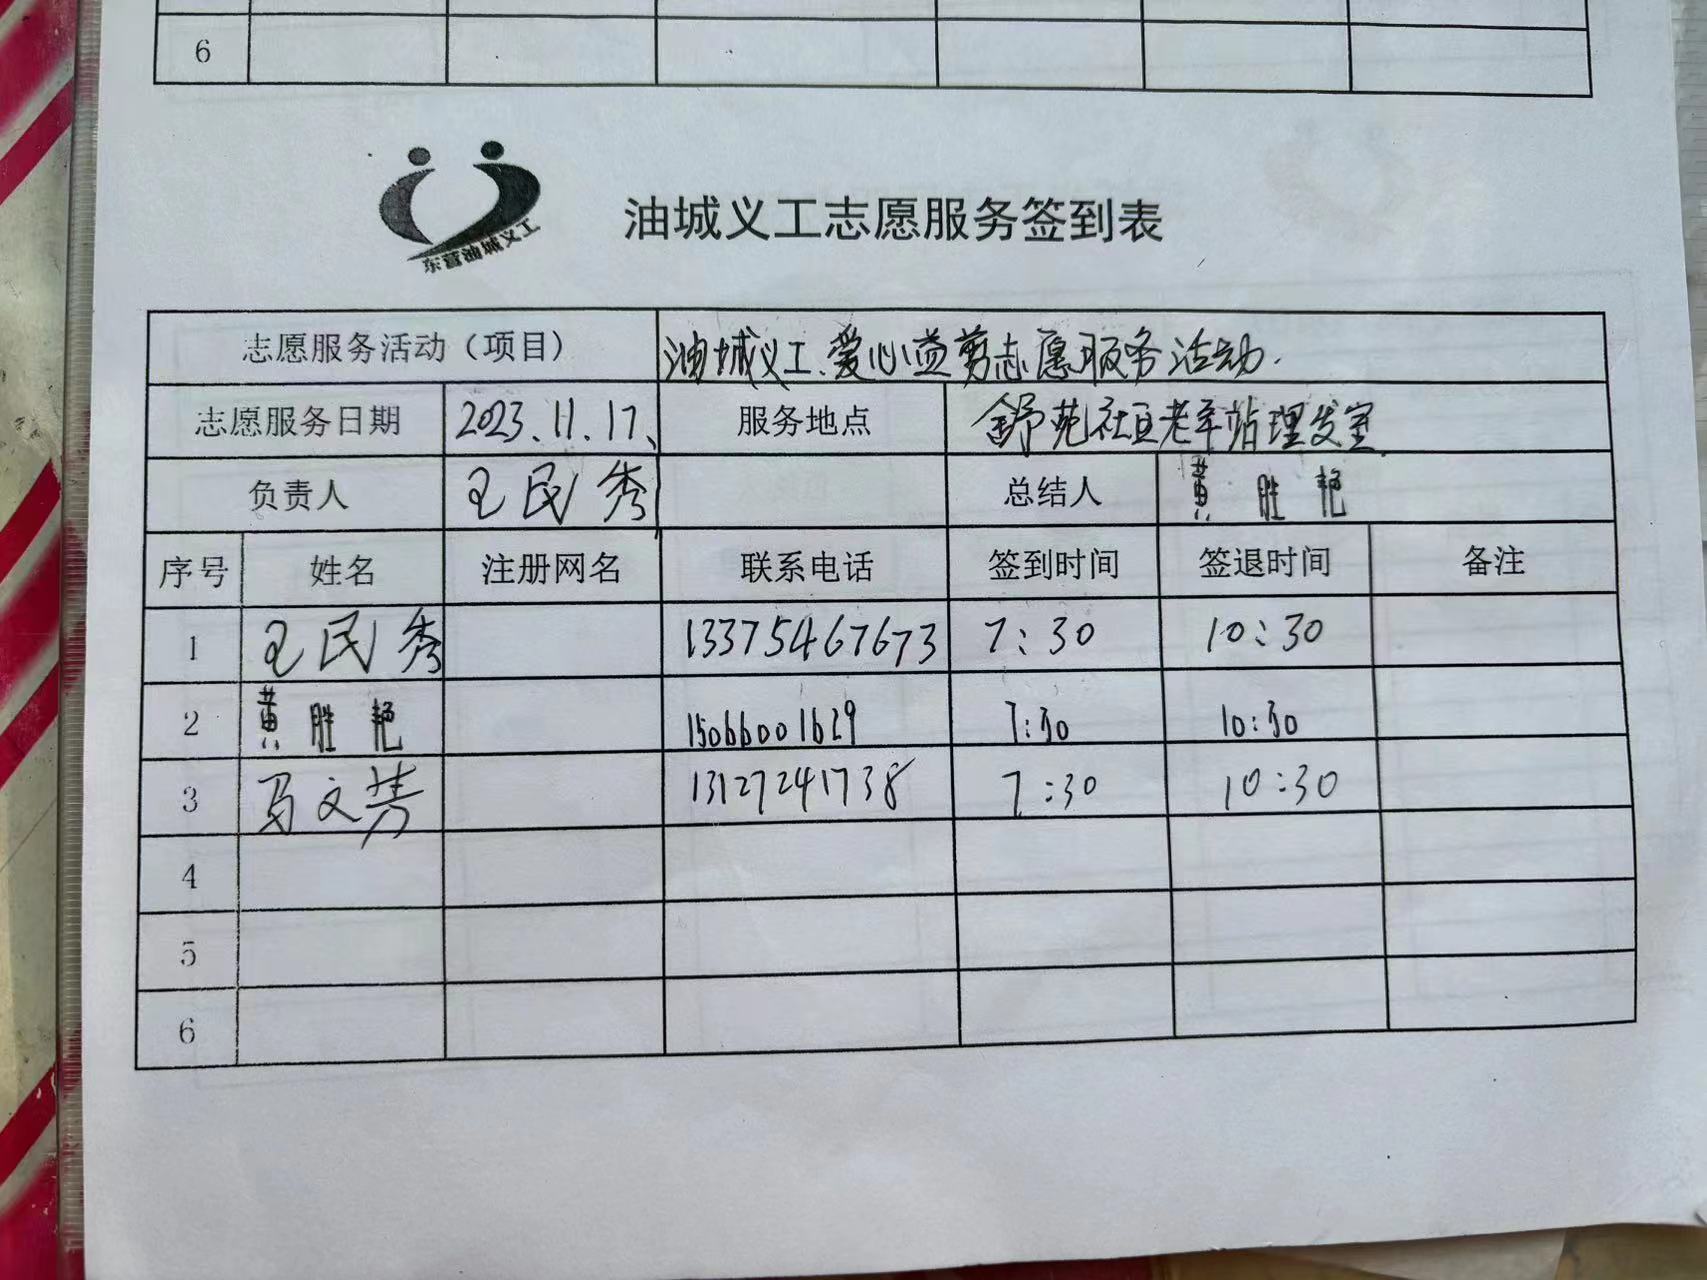 6
东营油城义工
油城义工志愿服务签到表
志愿服务活动（项目） 油城义工、爱心益剪志愿服务活动.
志愿服务日期 2023.11.17、 服务地点 舒苑社区老年站理发室
负责人 王民秀 总结人 黄胜艳
序号 姓名 注册网名 联系电话 签到时间 签退时间 备注
1 王民秀 13375467673 7:30 10:30
2 黄胜艳 15066001629 7:30 10:30
3 马文芳 13127241738 7:30 10:30
4
5
6